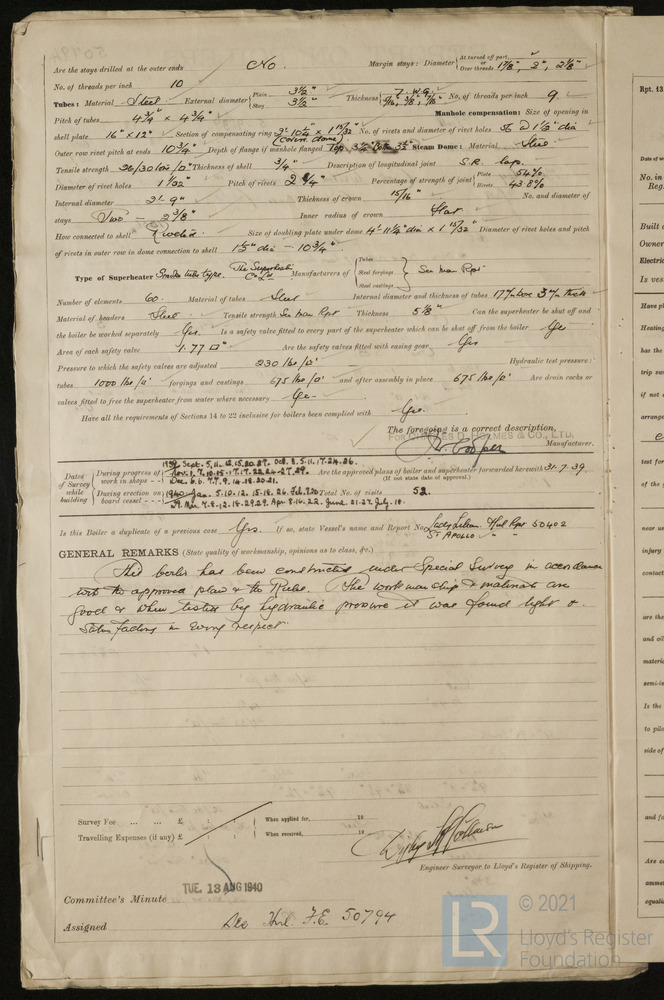 Are the stays drilled at the outer ends No. Margin stays: Diameter { At turned off part, or Over threads 1 7/8", 2", 2 1/8"
No. of threads per inch 10
Tubes: Material Steel External diameter { Plain 3 1/2" Stay 3 1/2" Thickness { 7. W.G. 5/16, 3/8, 7/16" No. of threads per inch 9.
Pitch of tubes 4 3/4" x 4 3/4" Manhole compensation: Size of opening in
shell plate 16" x 12" Section of compensating ring No. of rivets and diameter of rivet holes
Outer row rivet pitch at ends 10 3/4" Depth of flange if manhole flanged Steam Dome: Material Steel
Tensile strength 26/30 tons/□" Thickness of shell 3/4" Description of longitudinal joint S.R. lap.
Diameter of rivet holes 1 1/32" Pitch of rivets 2 1/4" Percentage of strength of joint { Plate 54% Rivets 43.8%
Internal diameter 2'- 9" Thickness of crown 15/16" No. and diameter of
stays Two - 2 3/8" Inner radius of crown flat
How connected to shell Riveted Size of doubling plate under dome 4'-11 1/2" dia x 1 15/32" Diameter of rivet holes and pitch
of rivets in outer row in dome connection to shell 1 1/2" dia - 10 3/4"
Type of Superheater Smoke tube type. The Superheater Co Ld Manufacturers of { Tubes Steel forgings Steel castings } See Man Rpt
Number of elements 60. Material of tubes Steel Internal diameter and thickness of tubes
Material of headers Steel Tensile strength See Man Rpt Thickness 5/8" Can the superheater be shut off and
the boiler be worked separately Yes. Is a safety valve fitted to every part of the superheater which can be shut off from the boiler Yes
Area of each safety valve 1.77 □" Are the safety valves fitted with easing gear Yes
Pressure to which the safety valves are adjusted 230 lbs/□" Hydraulic test pressure:
tubes 1000 lbs/□" forgings and castings 675 lbs/□" and after assembly in place 675 lbs/□" Are drain cocks or
valves fitted to free the superheater from water where necessary Yes
Have all the requirements of Sections 14 to 22 inclusive for boilers been complied with Yes.
The foregoing is a correct description,
For CHARLES D. HOLMES & CO., LTD.
Manufacturer.
Dates of Survey while building { During progress of work in shops - - 1939 Sept. 5.11.12.15.20.27. Oct. 3.5.11.17.24.26.
Nov. 1.7.10.15.17.22.24.27.29. Are the approved plans of boiler and superheater forwarded herewith 31.7.39.
(If not state date of approval.)
During erection on board vessel - - - 1940 Jan. 5.10.12.15.18.26. Feb. Total No. of visits 52
Is this Boiler a duplicate of a previous case Yes. If so, state Vessel's name and Report No. Hul Rpt 50402
ST APOLLO " "
GENERAL REMARKS (State quality of workmanship, opinions as to class, &c.)
This boiler has been constructed under Special Survey in accordance
with the approved plan & the Rules. The workmanship & materials are
good & when tested by hydraulic pressure it was found tight &
satisfactory in every respect.
Survey Fee ... ... £ : : When applied for, 19
Travelling Expenses (if any) £ : : When received, 19
Engineer Surveyor to Lloyd's Register of Shipping.
TUE. 13 AUG 1940
Committee's Minute
Assigned See Hul. F.E. 50794
Rpt. 13
Date of w
No. in
Reg.
Built
Owner
Electric
Is ves
Have pl
Heating
has the
trip sw
if not
arrange
test for
of the
near
injury
contact
are the
and oil
materia
semi-in
Is the
to pilo
side of
and fo
Are
amme
equali
LR © 2021
Lloyd's Register
Foundation